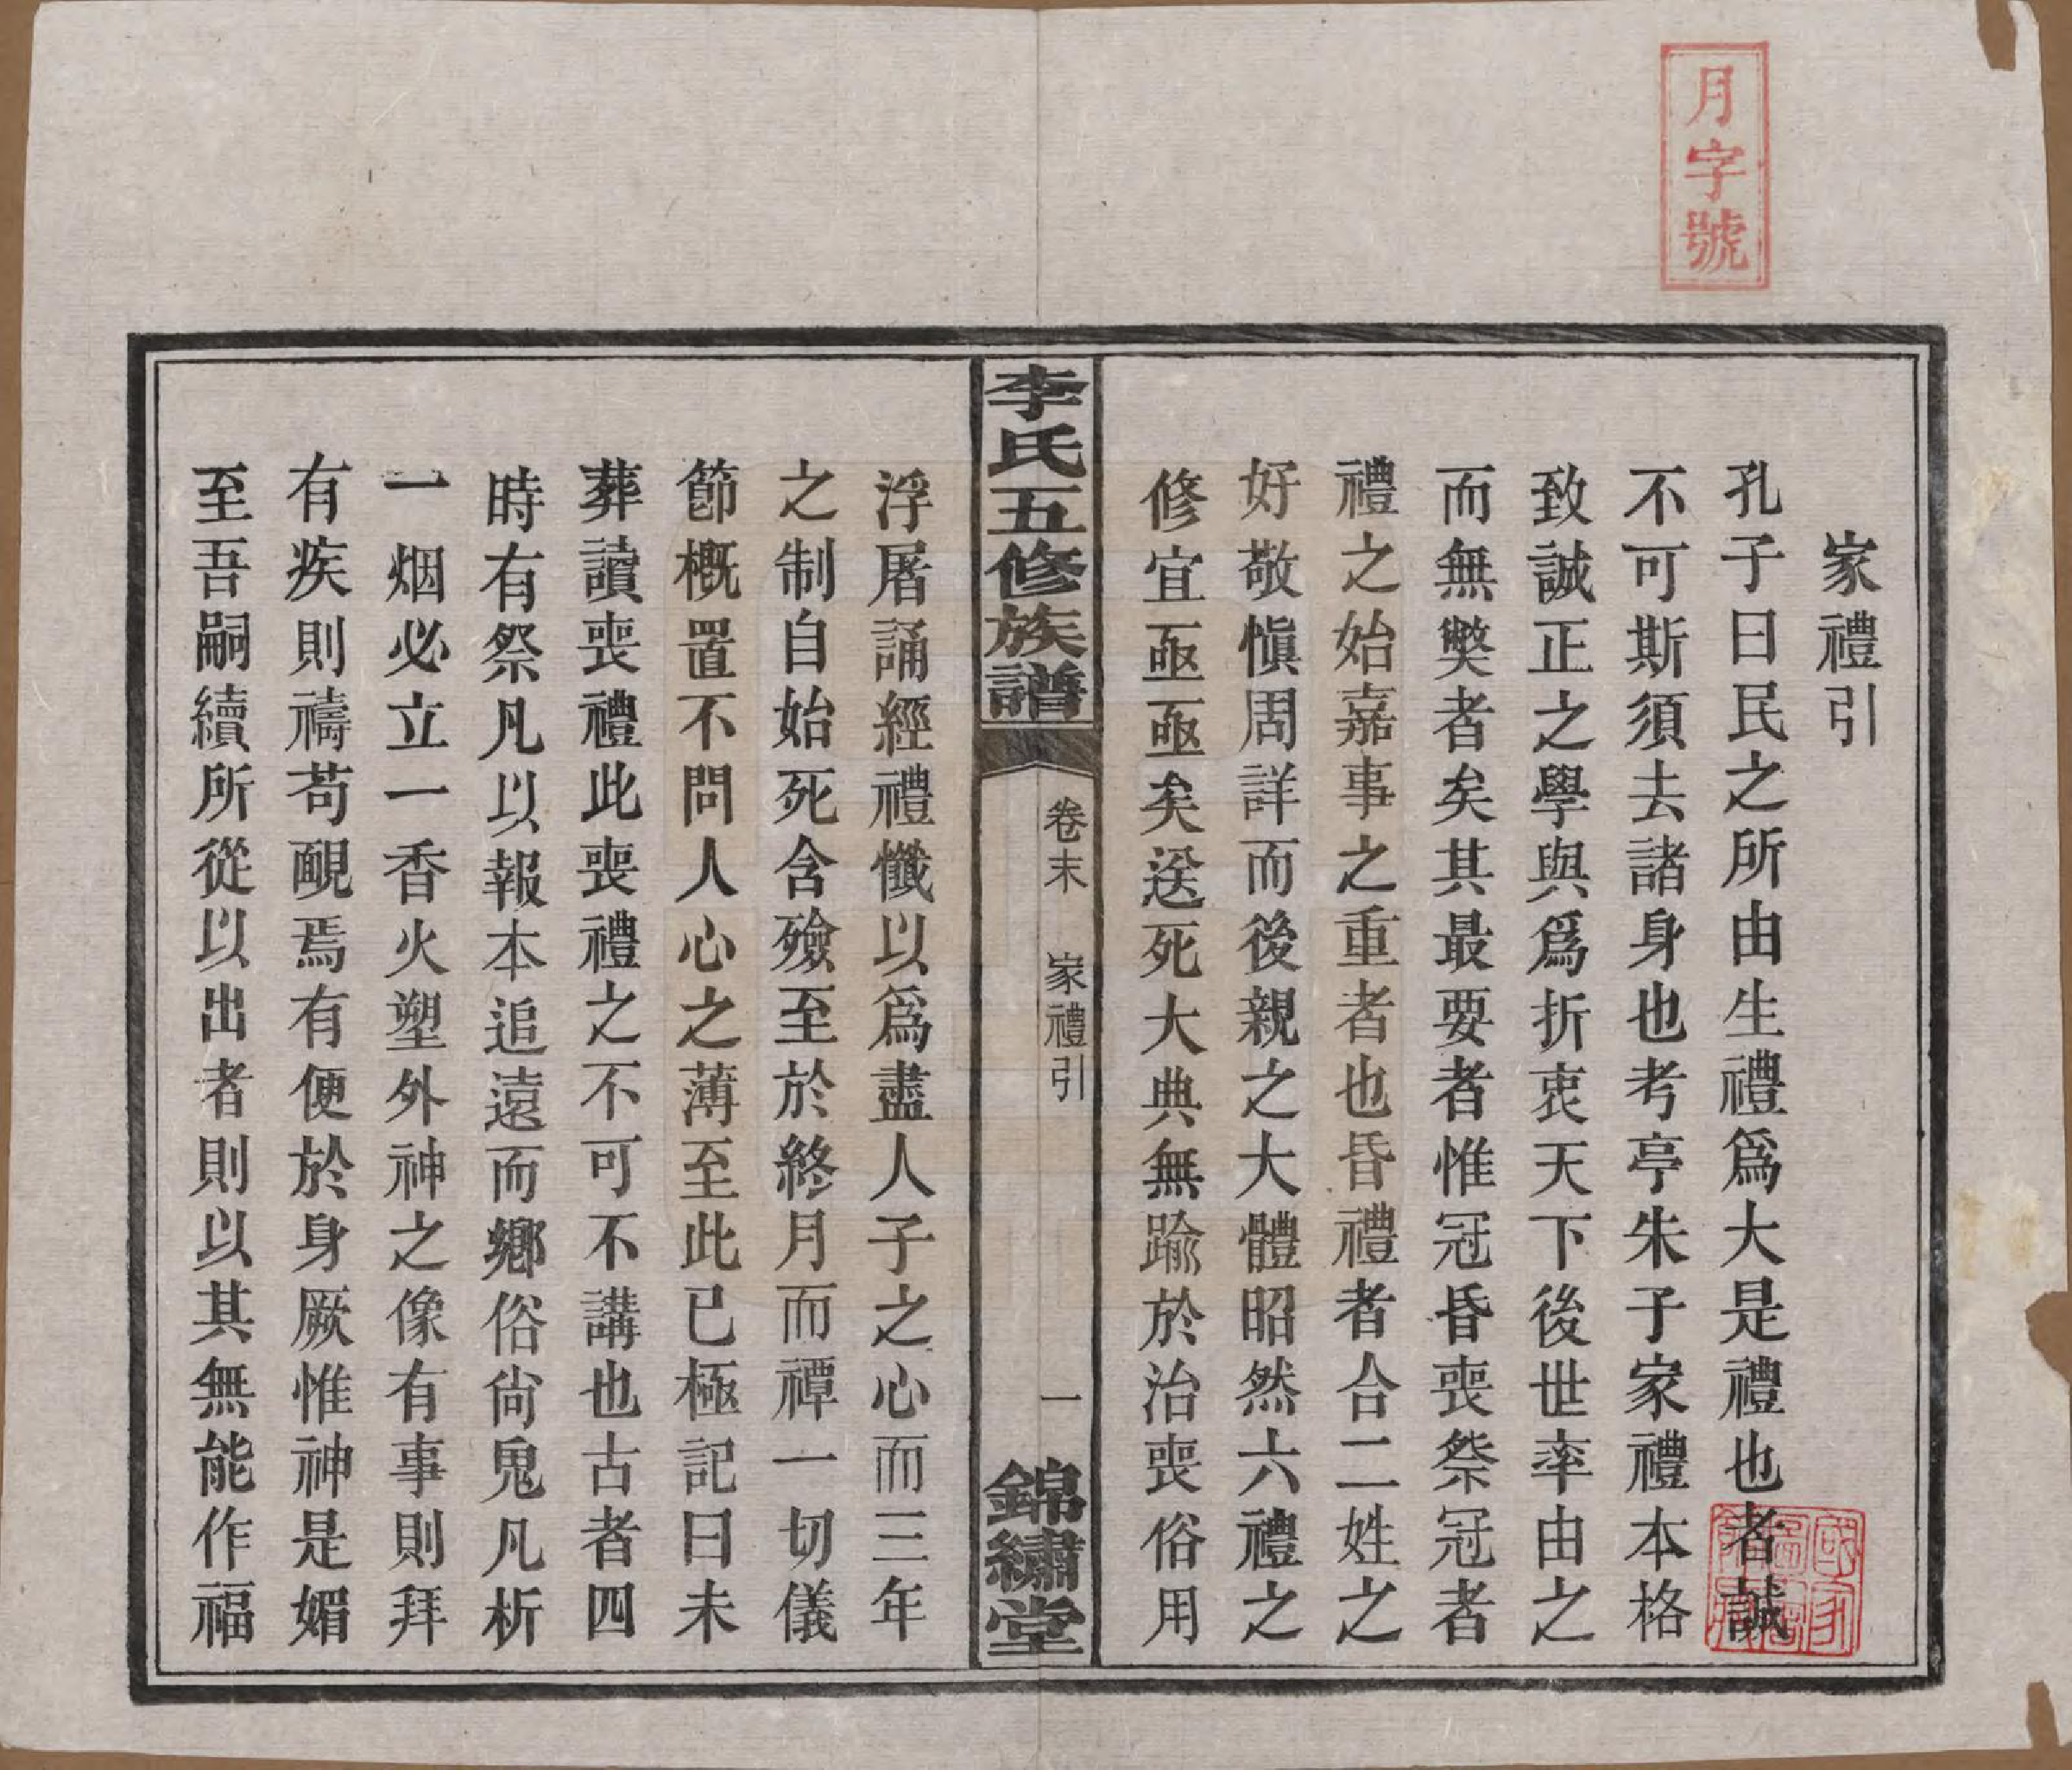 月字號
家禮引
孔子曰民之所由生禮爲大是禮也者誠
不可斯須去諸身也考亭朱子家禮本格
致誠正之學與爲折衷天下後世率由之
而無獘者矣其最要者惟冠昏喪祭冠者
禮之始嘉事之重者也昏禮者合二姓之
好敬愼周詳而後親之大體昭然六禮之
修宜亟亟矣送死大典無踰於治喪俗用
李氏五修族譜
卷末 家禮引
一
錦繡堂
浮屠誦經禮懺以爲盡人子之心而三年
之制自始死含殮至於終月而禫一切儀
節概置不問人心之薄至此已極記曰未
葬讀喪禮此喪禮之不可不講也古者四
時有祭凡以報本追遠而鄉俗尙鬼凡析
一烟必立一香火塑外神之像有事則拜
有疾則禱苟靦焉有便於身厥惟神是媚
至吾嗣續所從以出者則以其無能作福